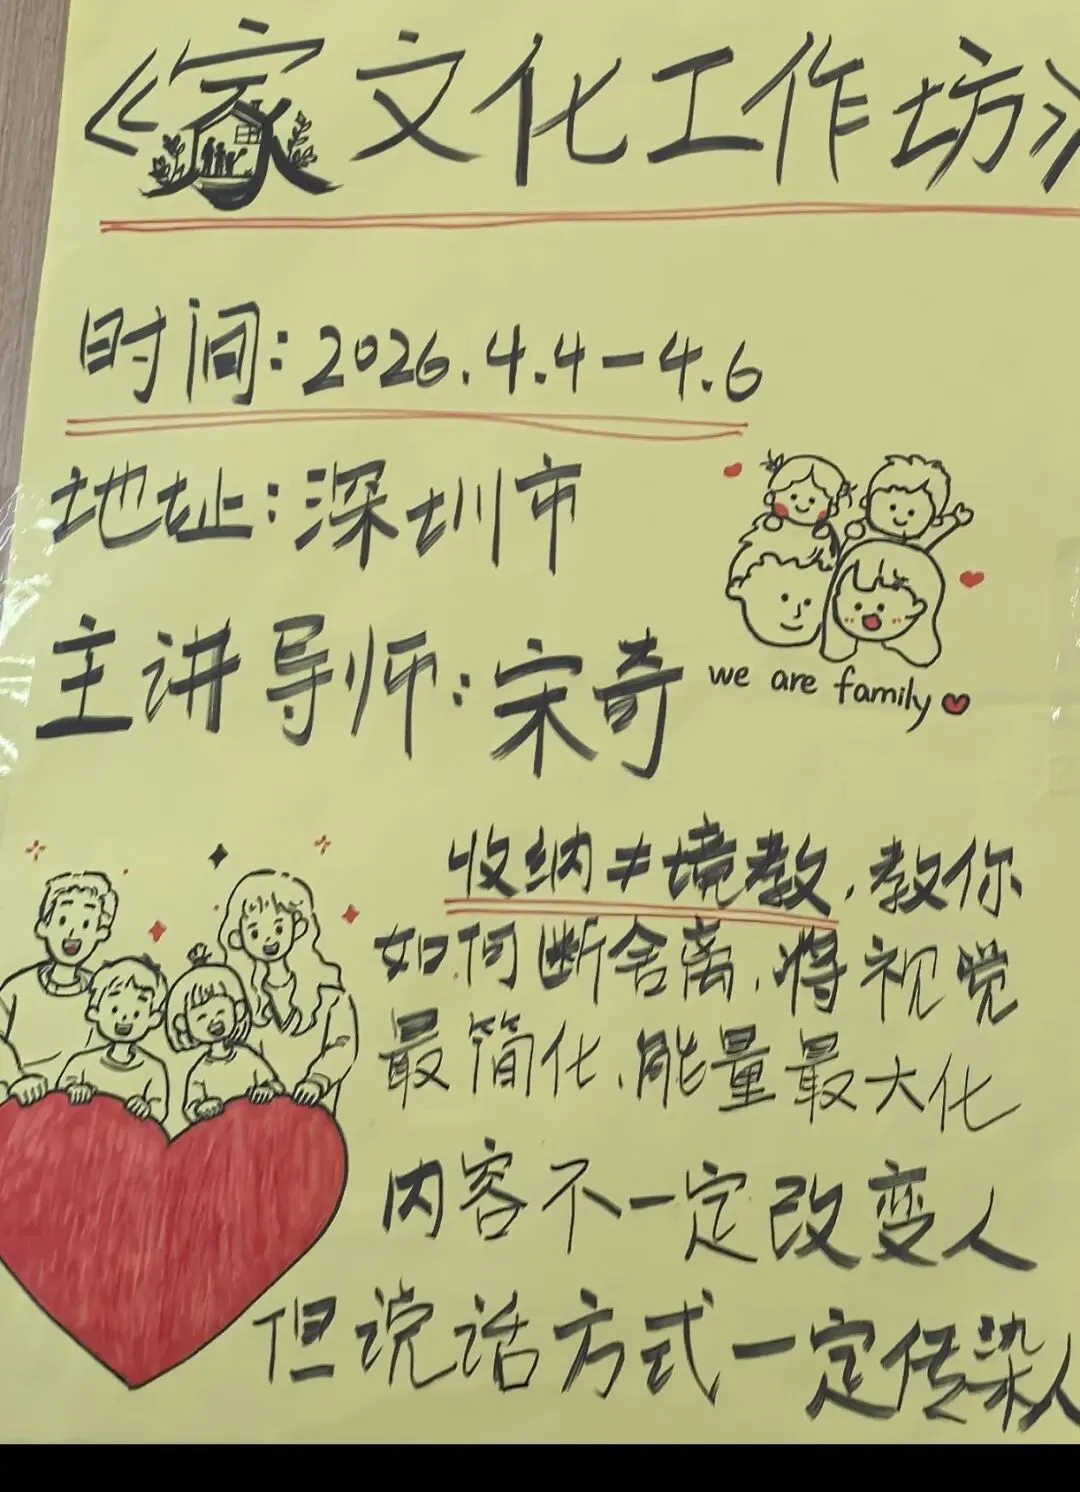 《家文化工作坊》
时间：2026.4.4－4.6
地址：深圳市
主讲导师：宋奇
we are family
收纳 境教，教你
如何断舍离，将视觉
最简化、能量最大化
内容不一定改变人
但说话方式一定传染人